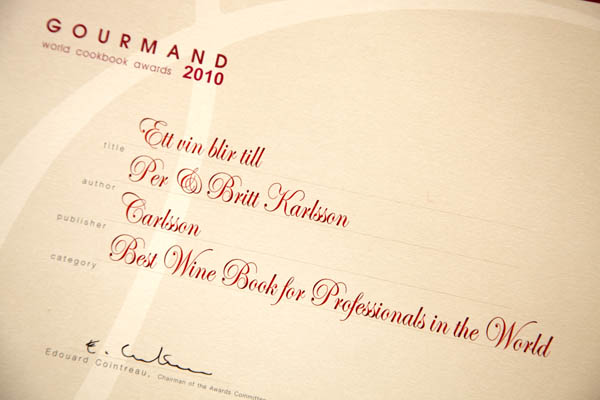 GOURMAND
world cookbook awards 2010
title Ett vin blir till
author Per & Britt Karlsson
publisher Carlsson
category Best Wine Book for Professionals in the World
Edouard Cointreau, Chairman of the Awards Committee